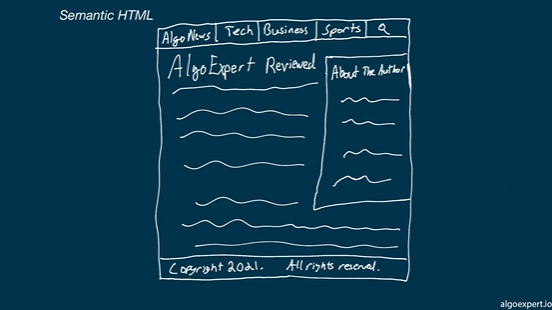 Semantic HTML
AlgoNews Tech Business Sports
AlgoExpert Reviewed
About The Author
Copyright 2021. All rights reserved.
algoexpert.io